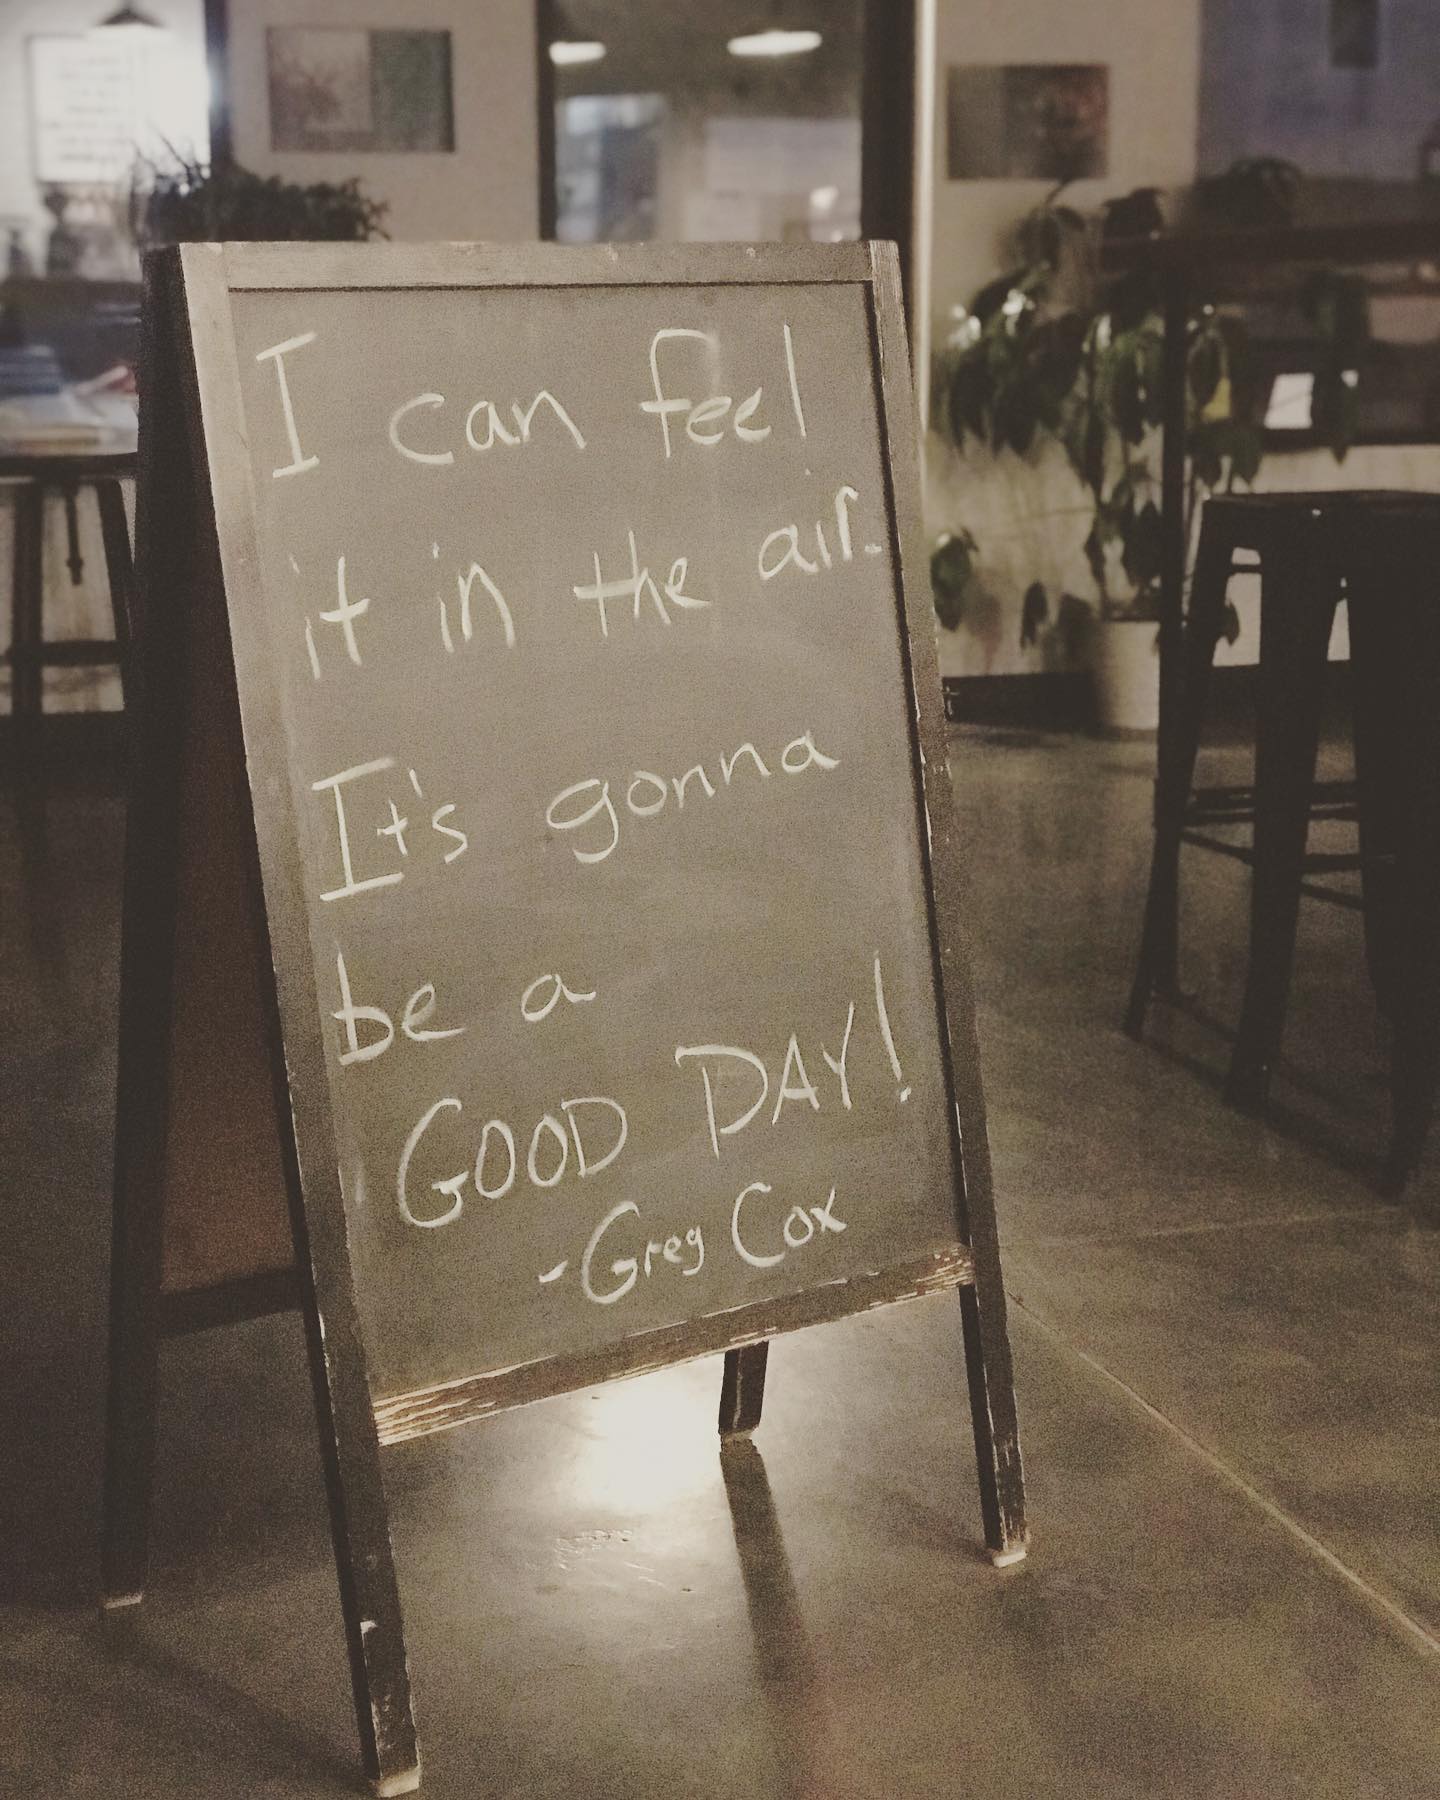 I can feel
it in the air.
It's gonna
be a
GOOD DAY!
-Greg Cox